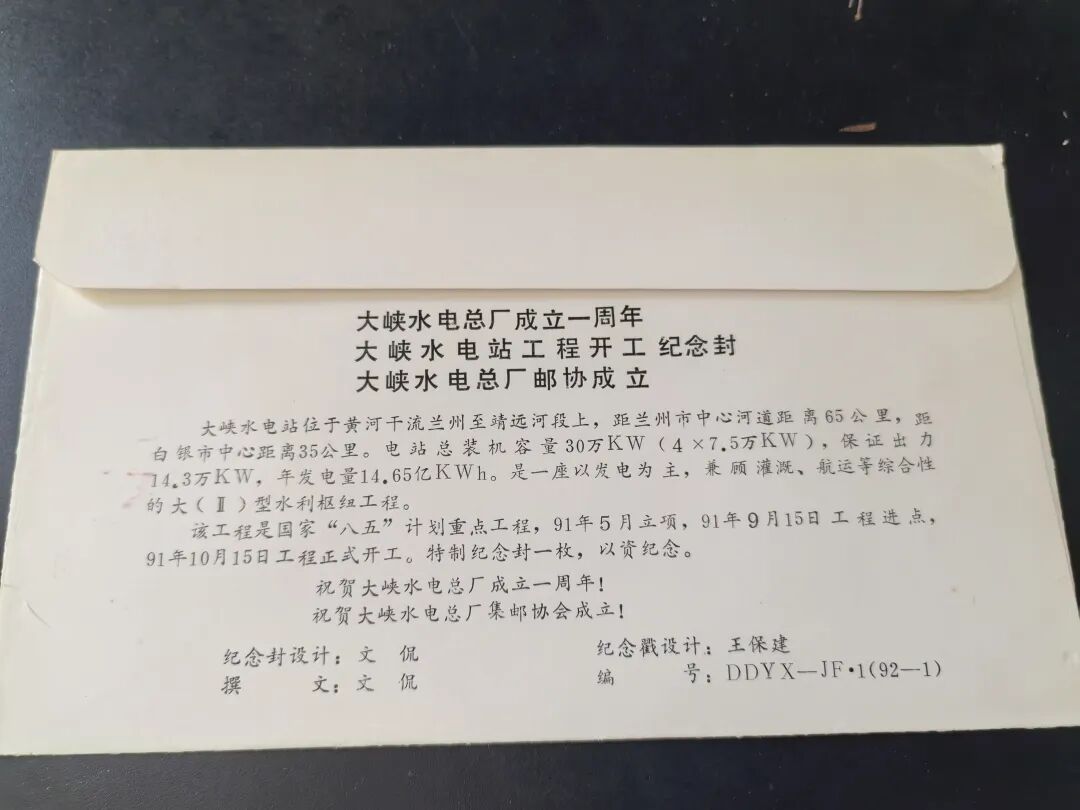 大峡水电总厂成立一周年
大峡水电站工程开工 纪念封
大峡水电总厂邮协成立
大峡水电站位于黄河干流兰州至靖远河段上，距兰州市中心河道距离65公里，距
白银市中心距离35公里。电站总装机容量30万KW（4×7.5万KW），保证出力
14.3万KW，年发电量14.65亿KWh。是一座以发电为主，兼顾灌溉、航运等综合性
的大（Ⅱ）型水利枢纽工程。
该工程是国家“八五”计划重点工程，91年5月立项，91年9月15日工程进点，
91年10月15日工程正式开工。特制纪念封一枚，以资纪念。
祝贺大峡水电总厂成立一周年！
祝贺大峡水电总厂集邮协会成立！
纪念封设计：文 侃
纪念戳设计：王保建
撰 文：文 侃
编 号：DDYX—JF·1(92—1)